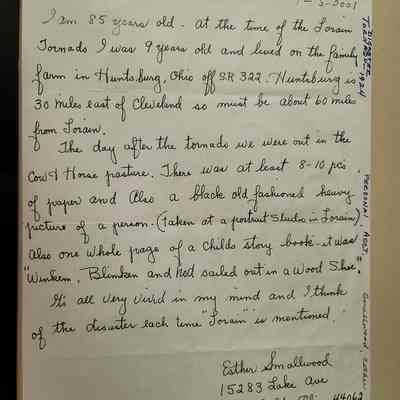 5-2001
I am 85 years old. At the time of the Lorain
Tornado I was 9 years old and lived on the family
farm in Huntsburg, Ohio off SR 322. Huntsburg is
30 miles east of Cleveland so must be about 60 miles
from Lorain.
The day after the tornado we were out in the
Cow & Horse pasture. There was at least 8-10 pc's
of paper and also a black old fashioned heavy
picture of a person. (Taken at a portrait studio in Lorain)
Also one whole page of a childs story book - it was
"Winkem, Blimken and Nod sailed out in a Wood Shoe".
It's all very vivid in my mind and I think
of the disaster each time "Lorain" is mentioned.
Esther Smallwood
15283 Lake Ave
44062
1924
PERSONAL ACCT.
Smallwood, Esther